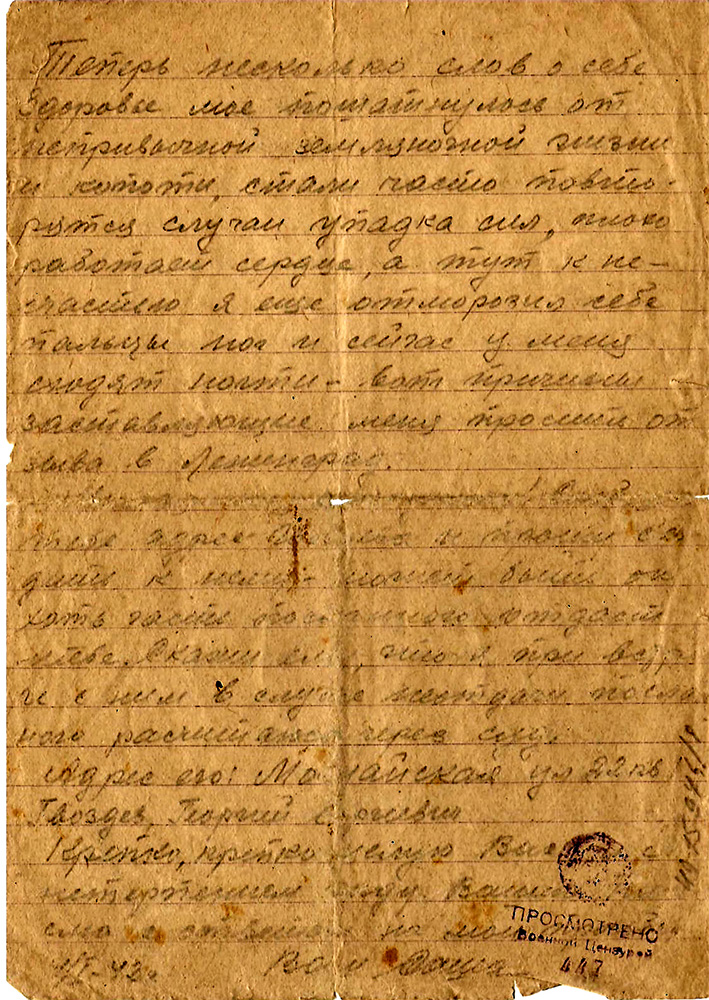 Теперь несколько слов о себе
Здоровье мое пошатнулось от
непривычной земляночной жизни
и копоти, стали часто повто-
рятся случаи упадка сил, плохо
работает сердце, а тут к не-
счастью я еще отморозил себе
пальцы ног и сейчас у меня
сходят ногти - вот причины
заставляющие меня просить от
зыва в Ленинград.
адрес и
дить к нему - может быть он
хоть часть посланного отдаст
тебе. Скажи ему, что я при встре
че с ним в случае неотдачи посла
ного расчитаюсь через суд.
Адрес его: Можайская ул 22 кв
Гвоздев Георгий Сергеевич
Крепко, крепко целую Вас с
нетерпением жду Вашего
на мои
43г. Ваш
ПРОСМОТРЕНО
Военной Цензурой
447